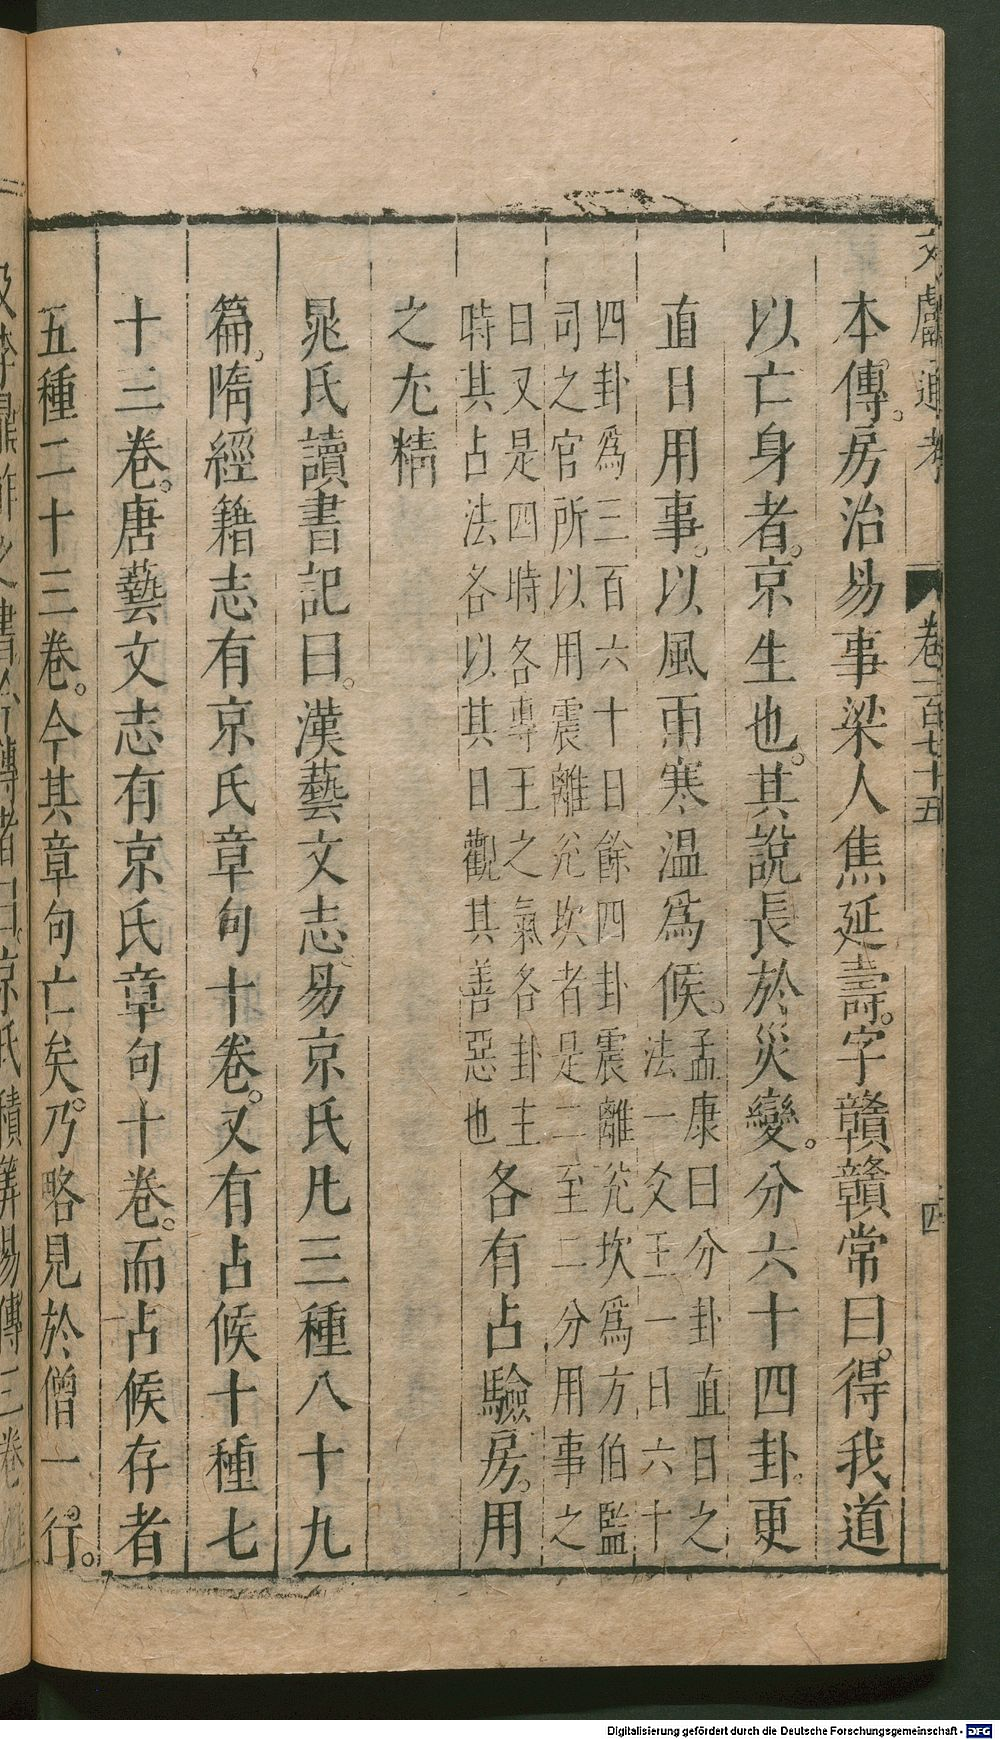 文獻通考 卷一百七十五 四
本傳。房治易事梁人焦延壽。字贛贛常曰。得我道
以亡身者。京生也。其說長於災變。分六十四卦更
直日用事。以風雨寒温爲候。孟康曰分卦直日之
法一爻王一日六十
四卦爲三百六十日餘四卦震離兊坎爲方伯監
司之官所以用震離兊坎者是二至二分用事之
日又是四時各專王之氣各卦主
時其占法各以其日觀其善惡也各有占驗房。用
之尤精
晁氏讀書記曰。漢藝文志。易京氏凡三種八十九
篇。隋經籍志有京氏章句十卷。又有占候十種七
十三卷。唐藝文志有京氏章句十卷。而占候存者
五種二十三卷。今其章句亡矣。乃略見於僧一行。
及李鼎祚之書今傳者曰京氏積筭易傳三卷雜
Digitalisierung gefördert durch die Deutsche Forschungsgemeinschaft - DFG